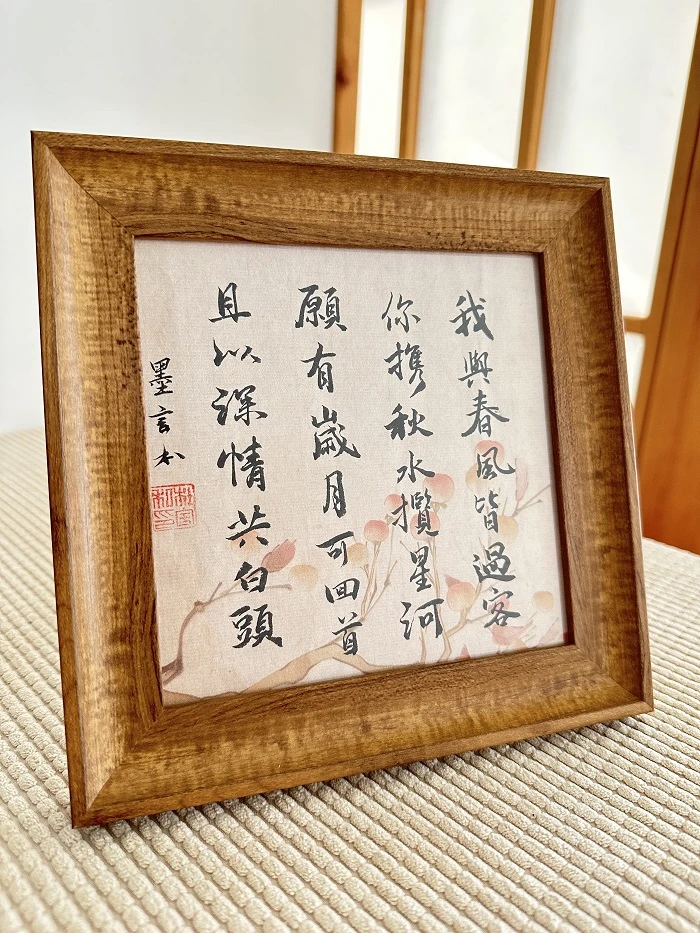 我與春風皆過客
你攜秋水攬星河
願有歲月可回首
且以深情共白頭
墨言